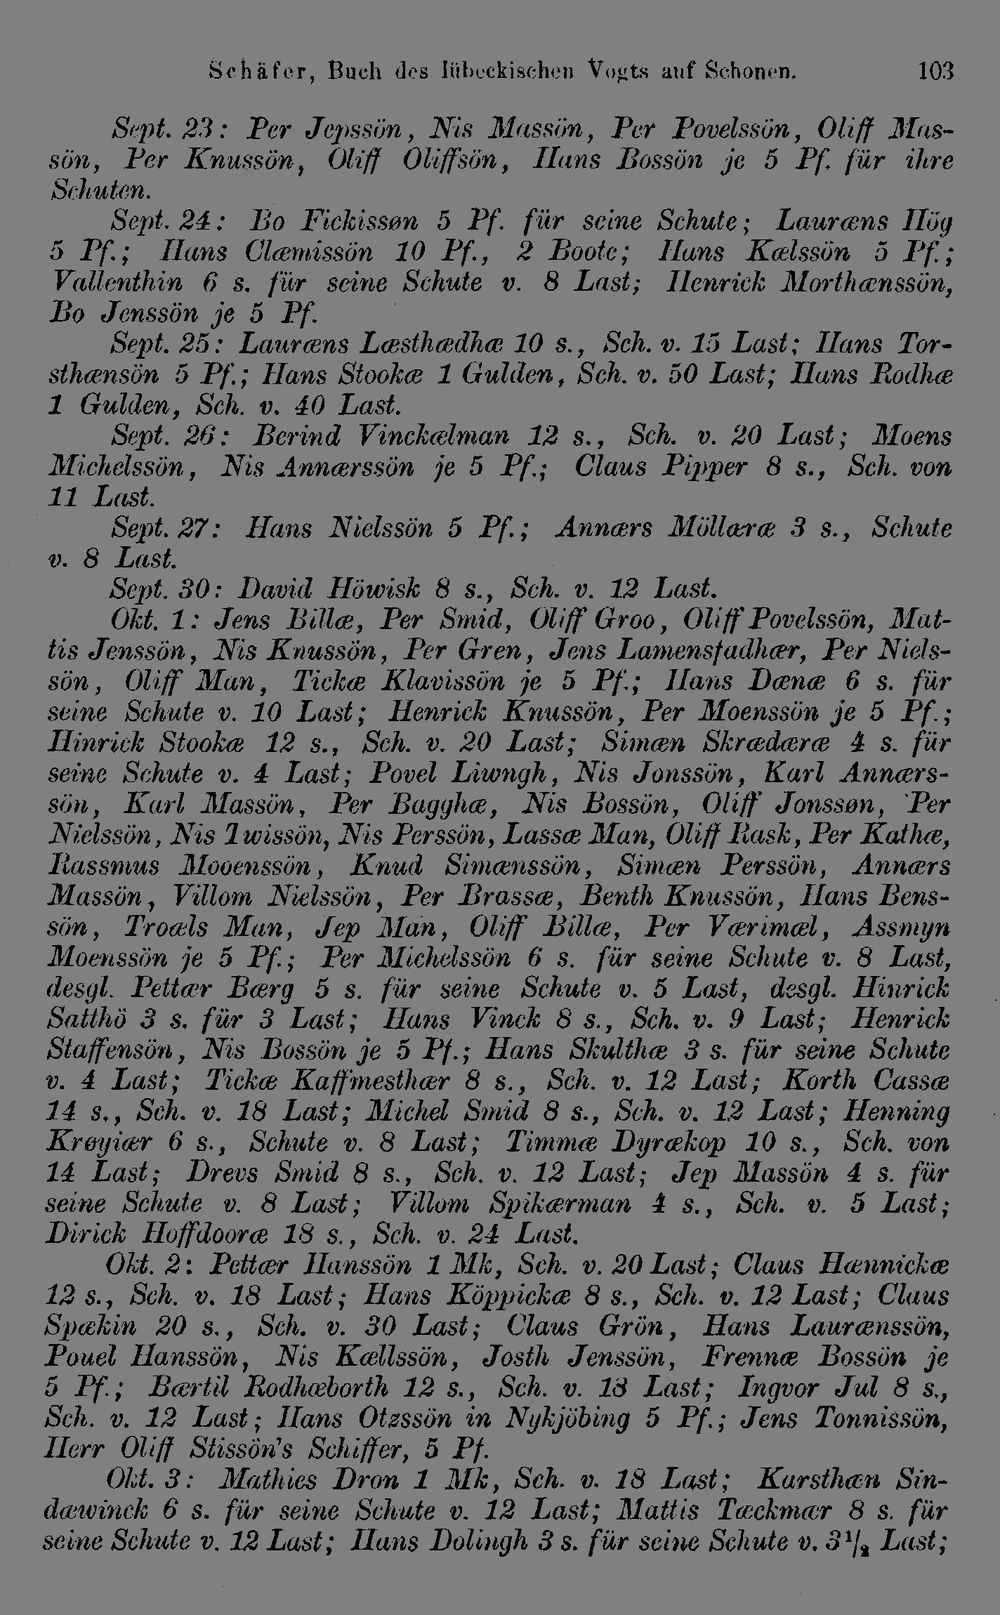 Schäfer, Buch des lübeckischen Vogts auf Schonen. 103
Sept. 23: Per Jepssön, Nis Massön, Per Povelssön, Oliff Mas-
sön, Per Knussön, Oliff Oliffsön, Hans Bossön je 5 Pf. für ihre
Schuten.
Sept. 24: Bo Fickissøn 5 Pf. für seine Schute; Lauræns Hög
5 Pf.; Hans Clæmissön 10 Pf., 2 Boote; Hans Kælssön 5 Pf.;
Vallenthin 6 s. für seine Schute v. 8 Last; Henrick Morthænssön,
Bo Jenssön je 5 Pf.
Sept. 25: Lauræns Læsthædhæ 10 s., Sch. v. 15 Last; Hans Tor-
sthænsön 5 Pf.; Hans Stookæ 1 Gulden, Sch. v. 50 Last; Hans Rodhæ
1 Gulden, Sch. v. 40 Last.
Sept. 26: Berind Vinckælman 12 s., Sch. v. 20 Last; Moens
Michelssön, Nis Annærssön je 5 Pf.; Claus Pipper 8 s., Sch. von
11 Last.
Sept. 27: Hans Nielssön 5 Pf.; Annærs Möllæræ 3 s., Schute
v. 8 Last.
Sept. 30: David Höwisk 8 s., Sch. v. 12 Last.
Okt. 1: Jens Billæ, Per Smid, Oliff Groo, Oliff Povelssön, Mat-
tis Jenssön, Nis Knussön, Per Gren, Jens Lamensfadhær, Per Niels-
sön, Oliff Man, Tickæ Klavissön je 5 Pf.; Hans Dænæ 6 s. für
seine Schute v. 10 Last; Henrick Knussön, Per Moenssön je 5 Pf.;
Hinrick Stookæ 12 s., Sch. v. 20 Last; Simæn Skrædæræ 4 s. für
seine Schute v. 4 Last; Povel Liwngh, Nis Jonssön, Karl Annærs-
sön, Karl Massön, Per Bagghæ, Nis Bossön, Oliff Jonssøn, Per
Nielssön, Nis Iwissön, Nis Perssön, Lassæ Man, Oliff Rask, Per Kathæ,
Rassmus Mooenssön, Knud Simænssön, Simæn Perssön, Annærs
Massön, Villom Nielssön, Per Brassæ, Benth Knussön, Hans Bens-
sön, Troæls Man, Jep Man, Oliff Billæ, Per Værimæl, Assmyn
Moenssön je 5 Pf.; Per Michelssön 6 s. für seine Schute v. 8 Last,
desgl. Pettær Bærg 5 s. für seine Schute v. 5 Last, desgl. Hinrick
Satthö 3 s. für 3 Last; Hans Vinck 8 s., Sch. v. 9 Last; Henrick
Staffensön, Nis Bossön je 5 Pf.; Hans Skulthæ 3 s. für seine Schute
v. 4 Last; Tickæ Kaffmesthær 8 s., Sch. v. 12 Last; Korth Cassæ
14 s., Sch. v. 18 Last; Michel Smid 8 s., Sch. v. 12 Last; Henning
Krøyiær 6 s., Schute v. 8 Last; Timmæ Dyrækop 10 s., Sch. von
14 Last; Drevs Smid 8 s., Sch. v. 12 Last; Jep Massön 4 s. für
seine Schute v. 8 Last; Villom Spikærman 4 s., Sch. v. 5 Last;
Dirick Hoffdooræ 18 s., Sch. v. 24 Last.
Okt. 2: Pettær Hanssön 1 Mk, Sch. v. 20 Last; Claus Hænnickæ
12 s., Sch. v. 18 Last; Hans Köppickæ 8 s., Sch. v. 12 Last; Claus
Spækin 20 s., Sch. v. 30 Last; Claus Grön, Hans Laurænssön,
Pouel Hanssön, Nis Kællssön, Josth Jenssön, Frennæ Bossön je
5 Pf.; Bærtil Rodhæborth 12 s., Sch. v. 18 Last; Ingvor Jul 8 s.,
Sch. v. 12 Last; Hans Otessön in Nykjöbing 5 Pf.; Jens Tonnissön,
Herr Oliff Stissön's Schiffer, 5 Pf.
Okt. 3: Mathies Dron 1 Mk, Sch. v. 18 Last; Karsthæn Sin-
dæwinck 6 s. für seine Schute v. 12 Last; Mattis Tæckmær 8 s. für
seine Schute v. 12 Last; Hans Dolingh 3 s. für seine Schute v. 3 1/2 Last;